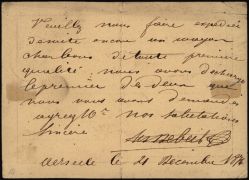 Veuillez nous faire expédier
de suite encore un wagon
charbons de toute première
qualité nous avons déchargé
le premier des deux que
nous vous avons demandés
agréez Mr nos salutations
sincères
le 21 Décembre